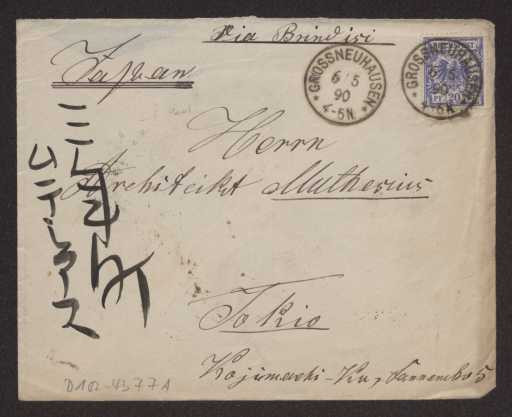 Via Brindisi
Japan
GROSSNEUHAUSEN
6/5
90
4-5N.
GROSSNEUHAUSEN
6/5
90
4-5N.
Herrn
Architeckt Muthesius
Tokio
Kojimachi-Ku, Sannencho 5
ムテジアース
D102-4377A